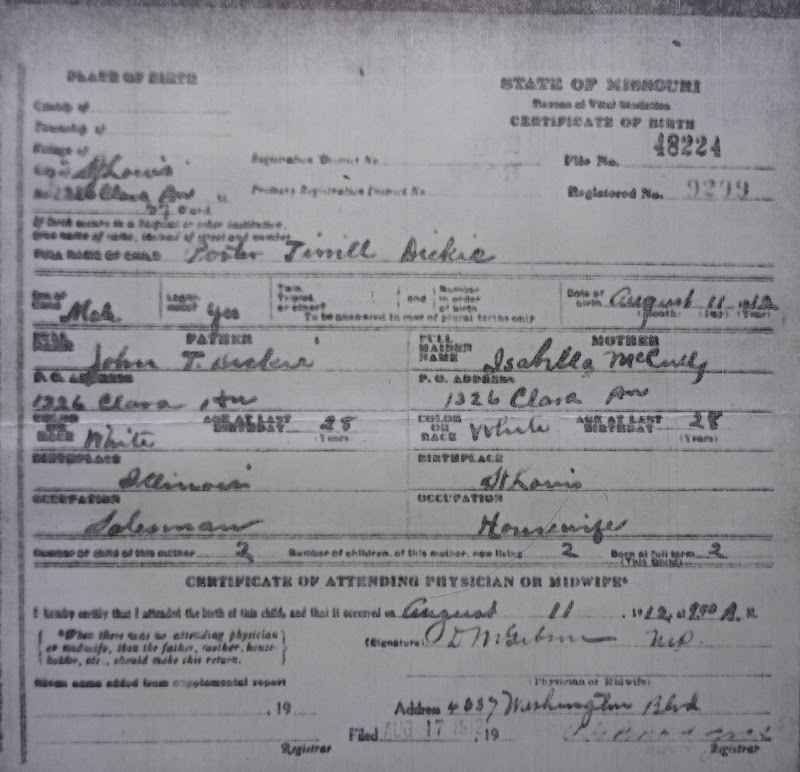 PLACE OF BIRTH
County of
Township of
Village of
City of St Louis
No. 1326 Clara Ave St.
27 Ward
If birth occurs in a hospital or other institution,
give name of same, instead of street and number
STATE OF MISSOURI
Bureau of Vital Statistics
CERTIFICATE OF BIRTH
Registration District No.
File No. 48224
Primary Registration District No.
Registered No. 9299
FULL NAME OF CHILD Porter Tirrill Dickie
Sex of Child Male
Legitimate? Yes
Twin, Triplet, or other?
and
Number in order of birth
To be answered in case of plural births only
Date of birth August 11 1912
(Month) (Day) (Year)
FULL NAME FATHER
John T. Dickie
FULL MAIDEN NAME MOTHER
Isabella McCully
P. O. ADDRESS
1326 Clara Ave
P. O. ADDRESS
1326 Clara Ave
COLOR OR RACE White
AGE AT LAST BIRTHDAY 28
(Years)
COLOR OR RACE White
AGE AT LAST BIRTHDAY 28
(Years)
BIRTHPLACE
Illinois
BIRTHPLACE
St Louis
OCCUPATION
Salesman
OCCUPATION
Housewife
Number of child of this mother 2
Number of children, of this mother, now living 2
Born at full term 2
CERTIFICATE OF ATTENDING PHYSICIAN OR MIDWIFE*
I hereby certify that I attended the birth of this child, and that it occurred on August 11, 1912, at A. M.
*When there was no attending physician
or midwife, then the father, mother, house-
holder, etc., should make this return.
(Signature) MD.
(Physician or Midwife)
Given name added from supplemental report
, 19
Registrar
Address Washington Blvd
Filed AUG 17 , 19
Registrar